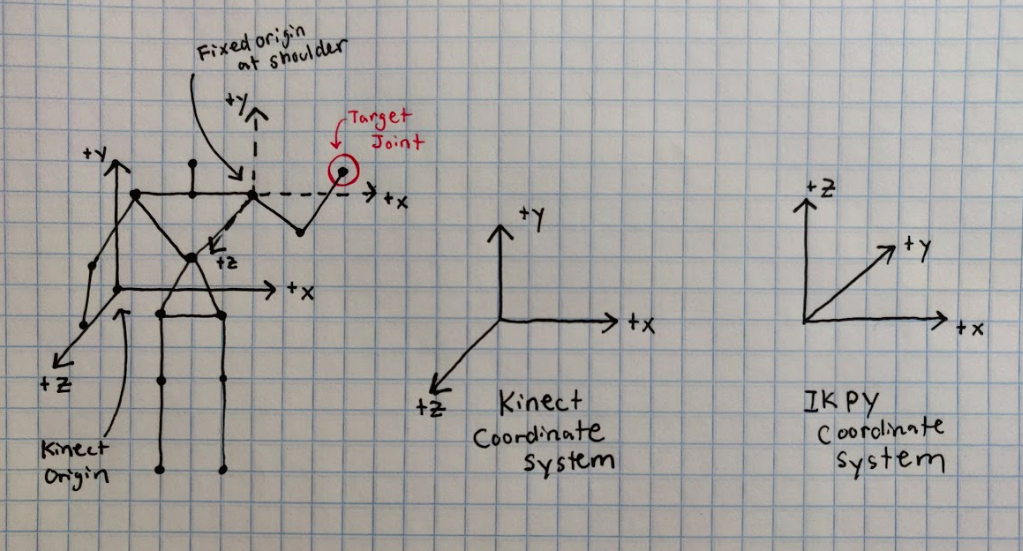 Fixed origin
at shoulder
+Y
Target
Joint
+Y
+X
+Z
+X
+Z
Kinect
Origin
+Y
+X
+Z
Kinect
Coordinate
System
+Z
+Y
+X
IKPY
Coordinate
System